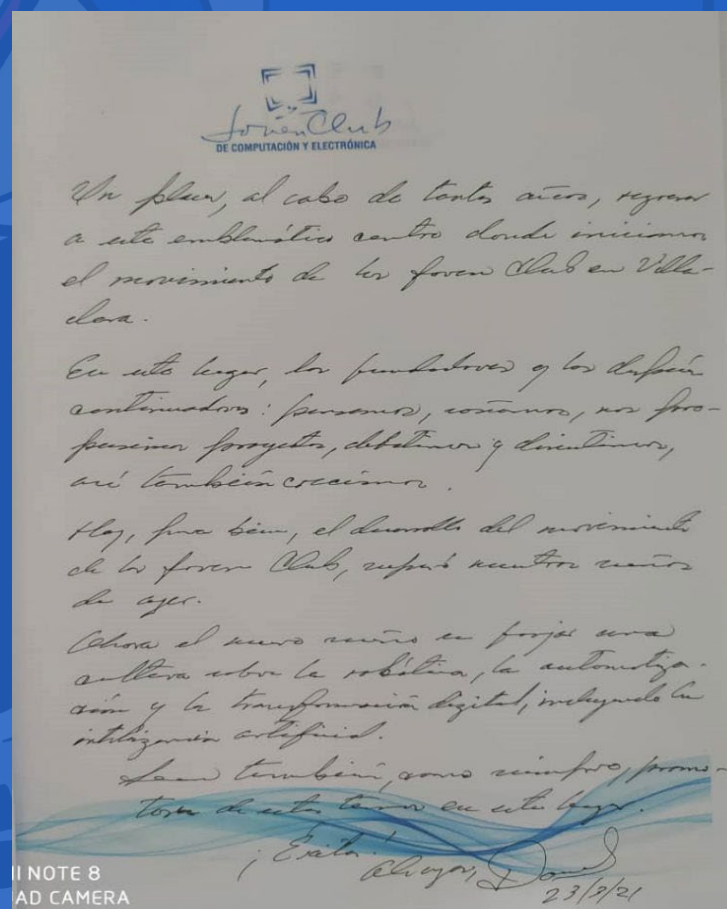 Joven Club
DE COMPUTACIÓN Y ELECTRÓNICA
Un placer, al cabo de tantos años, regresar
a este emblemático centro donde iniciamos
el movimiento de los Joven Club en Villa-
clara.
En este lugar, los fundadores y los después
continuadores: pensamos, soñamos, nos pro-
pusimos proyectos, debatimos y discutimos,
así también crecimos.
Hoy, para bien, el desarrollo del movimiento
de los Joven Club, superó nuestros sueños
de ayer.
Ahora el nuevo sueño es forjar una
cultura sobre la robótica, la automatiza-
ción y la transformación digital, incluyendo la
inteligencia artificial.
Sean también, como siempre, promo-
tores de estos temas en este lugar.
¡Éxitos!
23/3/21
II NOTE 8
AD CAMERA